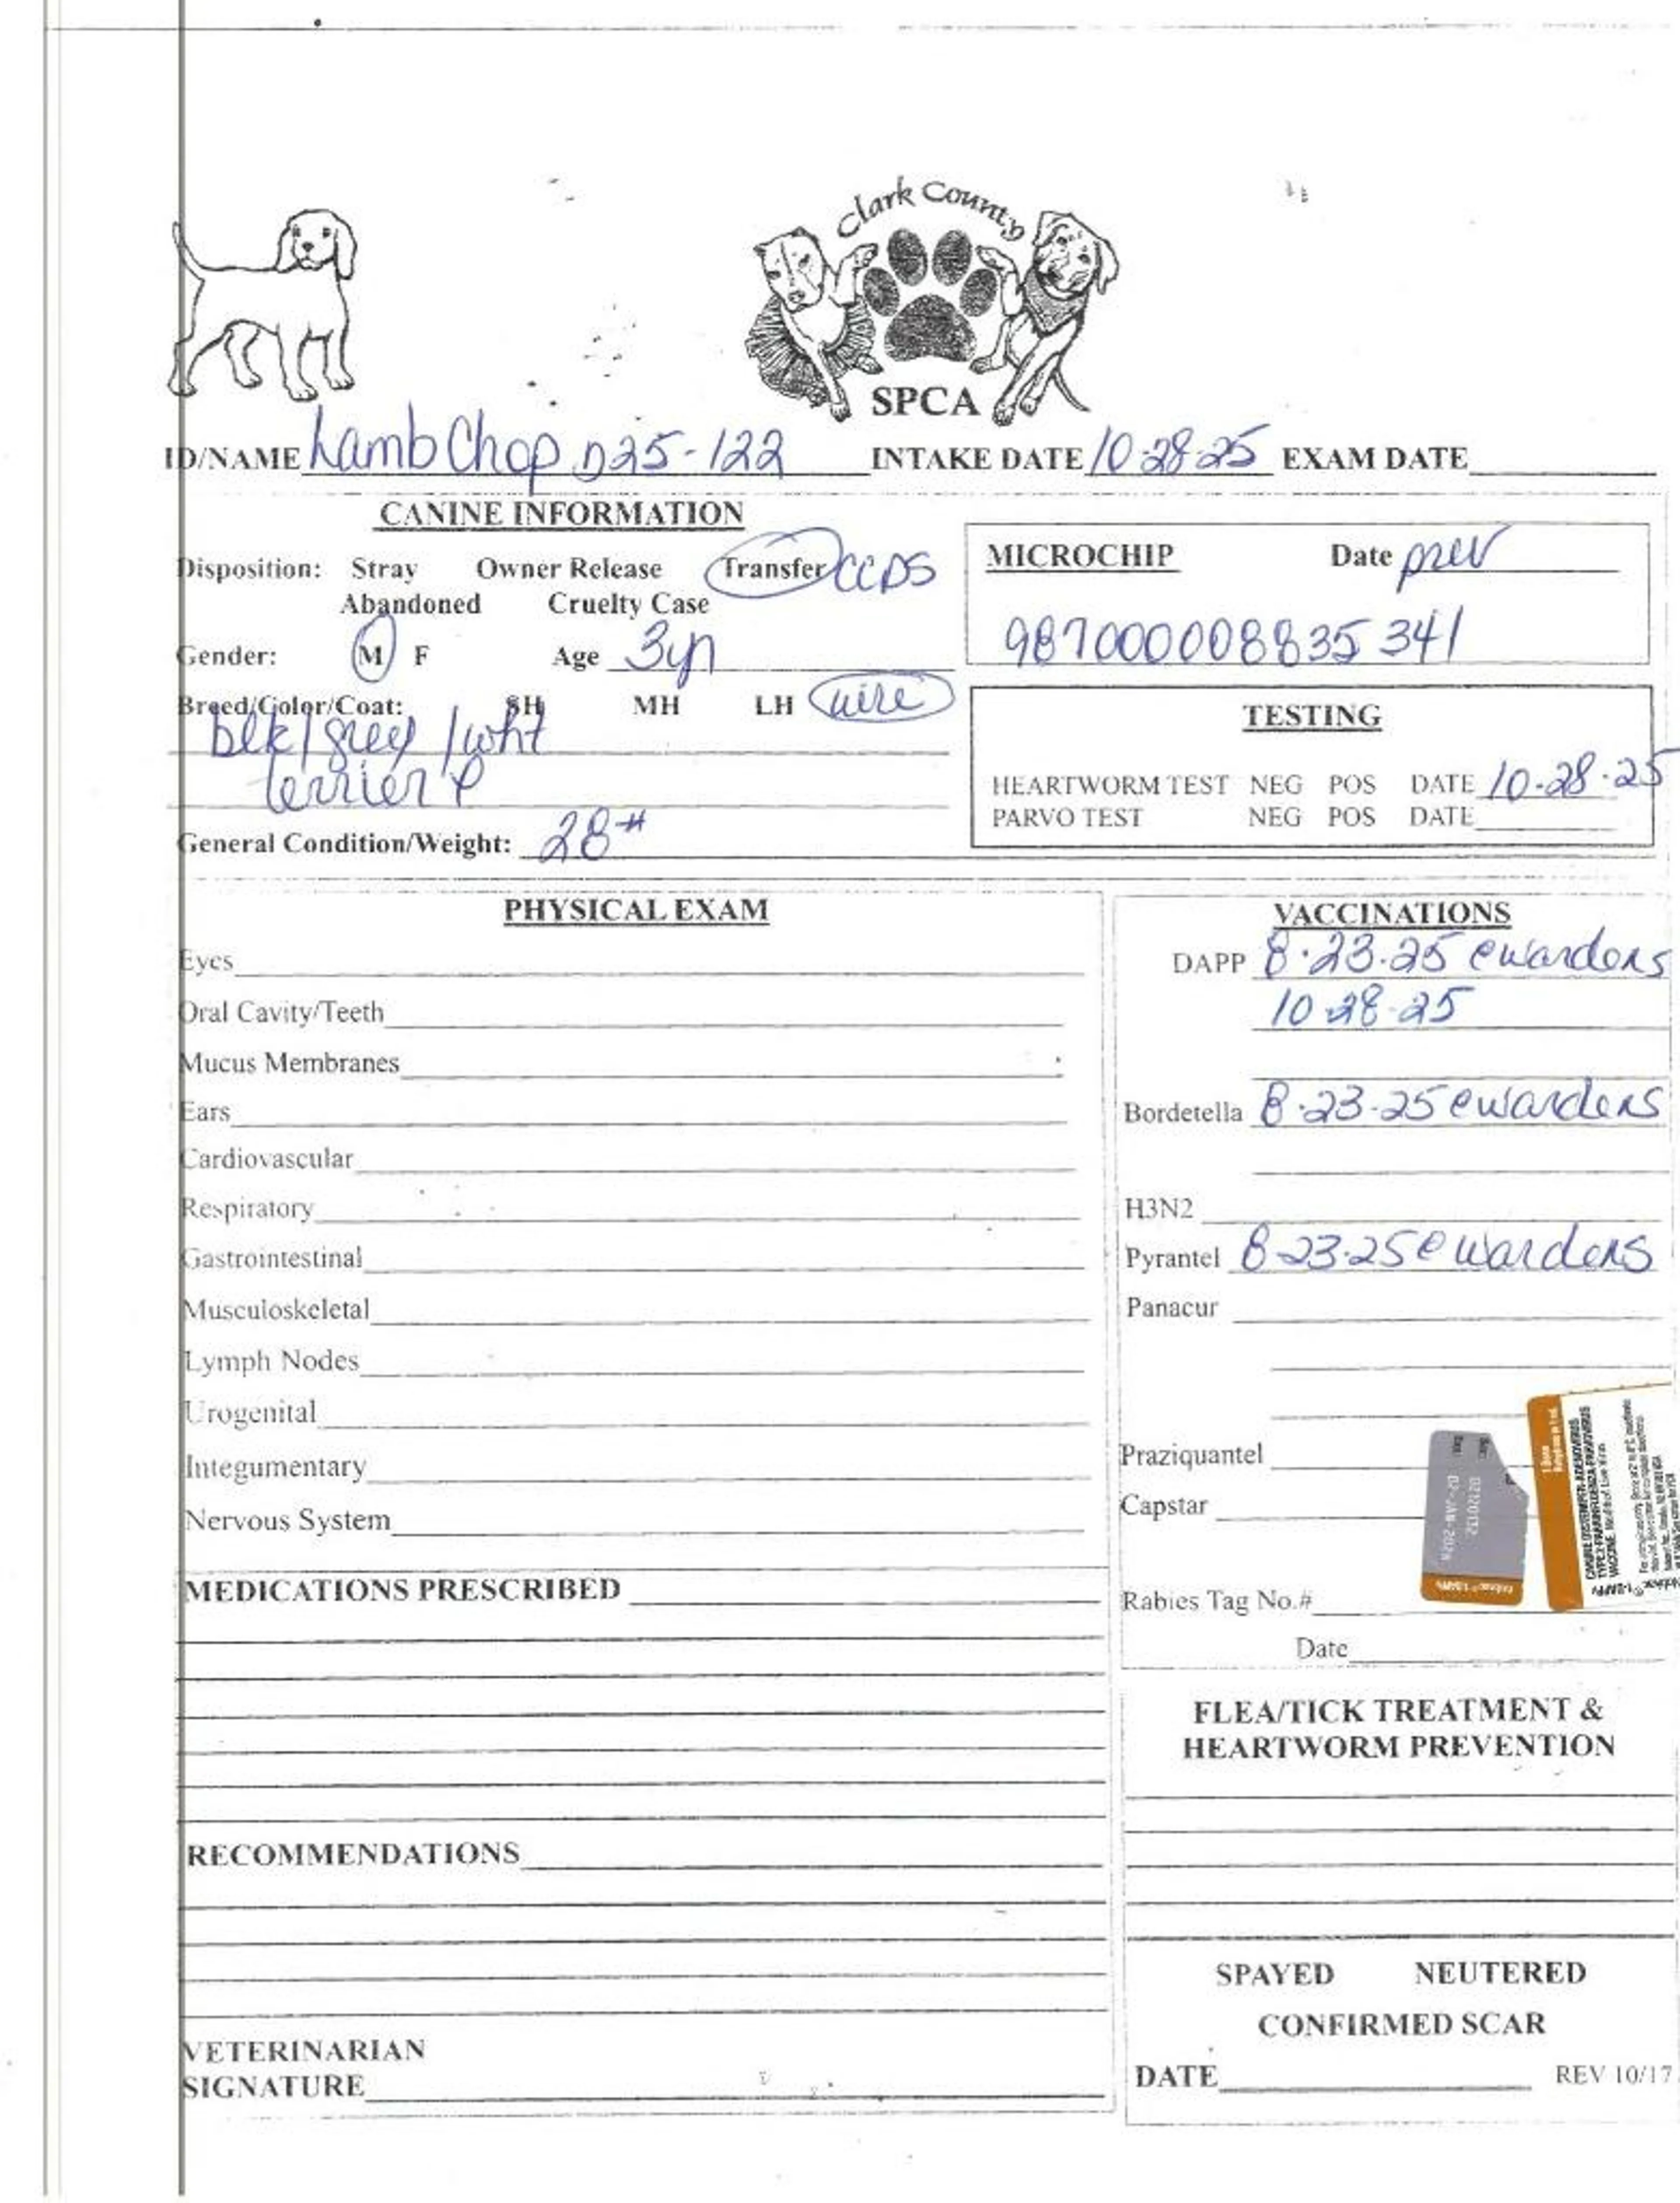 Clark County
SPCA
ID/NAME Lamb Chop D25-122 INTAKE DATE 10-28-25 EXAM DATE
CANINE INFORMATION
Disposition: Stray Owner Release Transfer CCDS
Abandoned Cruelty Case
Gender: M F Age 3yr
Breed/Color/Coat: SH MH LH wire
blk/grey/wht
terrier
General Condition/Weight: 28#
MICROCHIP Date prev
987000008835341
TESTING
HEARTWORM TEST NEG POS DATE 10-28-25
PARVO TEST NEG POS DATE
PHYSICAL EXAM
Eyes
Oral Cavity/Teeth
Mucus Membranes
Ears
Cardiovascular
Respiratory
Gastrointestinal
Musculoskeletal
Lymph Nodes
Urogenital
Integumentary
Nervous System
MEDICATIONS PRESCRIBED
RECOMMENDATIONS
VETERINARIAN
SIGNATURE
VACCINATIONS
DAPP 8-23-25 @wardens
10-28-25
Bordetella 8-23-25 @wardens
H3N2
Pyrantel 8-23-25 @wardens
Panacur
Praziquantel
Capstar
Rabies Tag No.#
Date
1 Dose
CANINE DISTEMPER-ADENOVIRUS
TYPE 2-PARAINFLUENZA-PARVOVIRUS
VACCINE
FLEA/TICK TREATMENT &
HEARTWORM PREVENTION
SPAYED NEUTERED
CONFIRMED SCAR
DATE REV 10/17